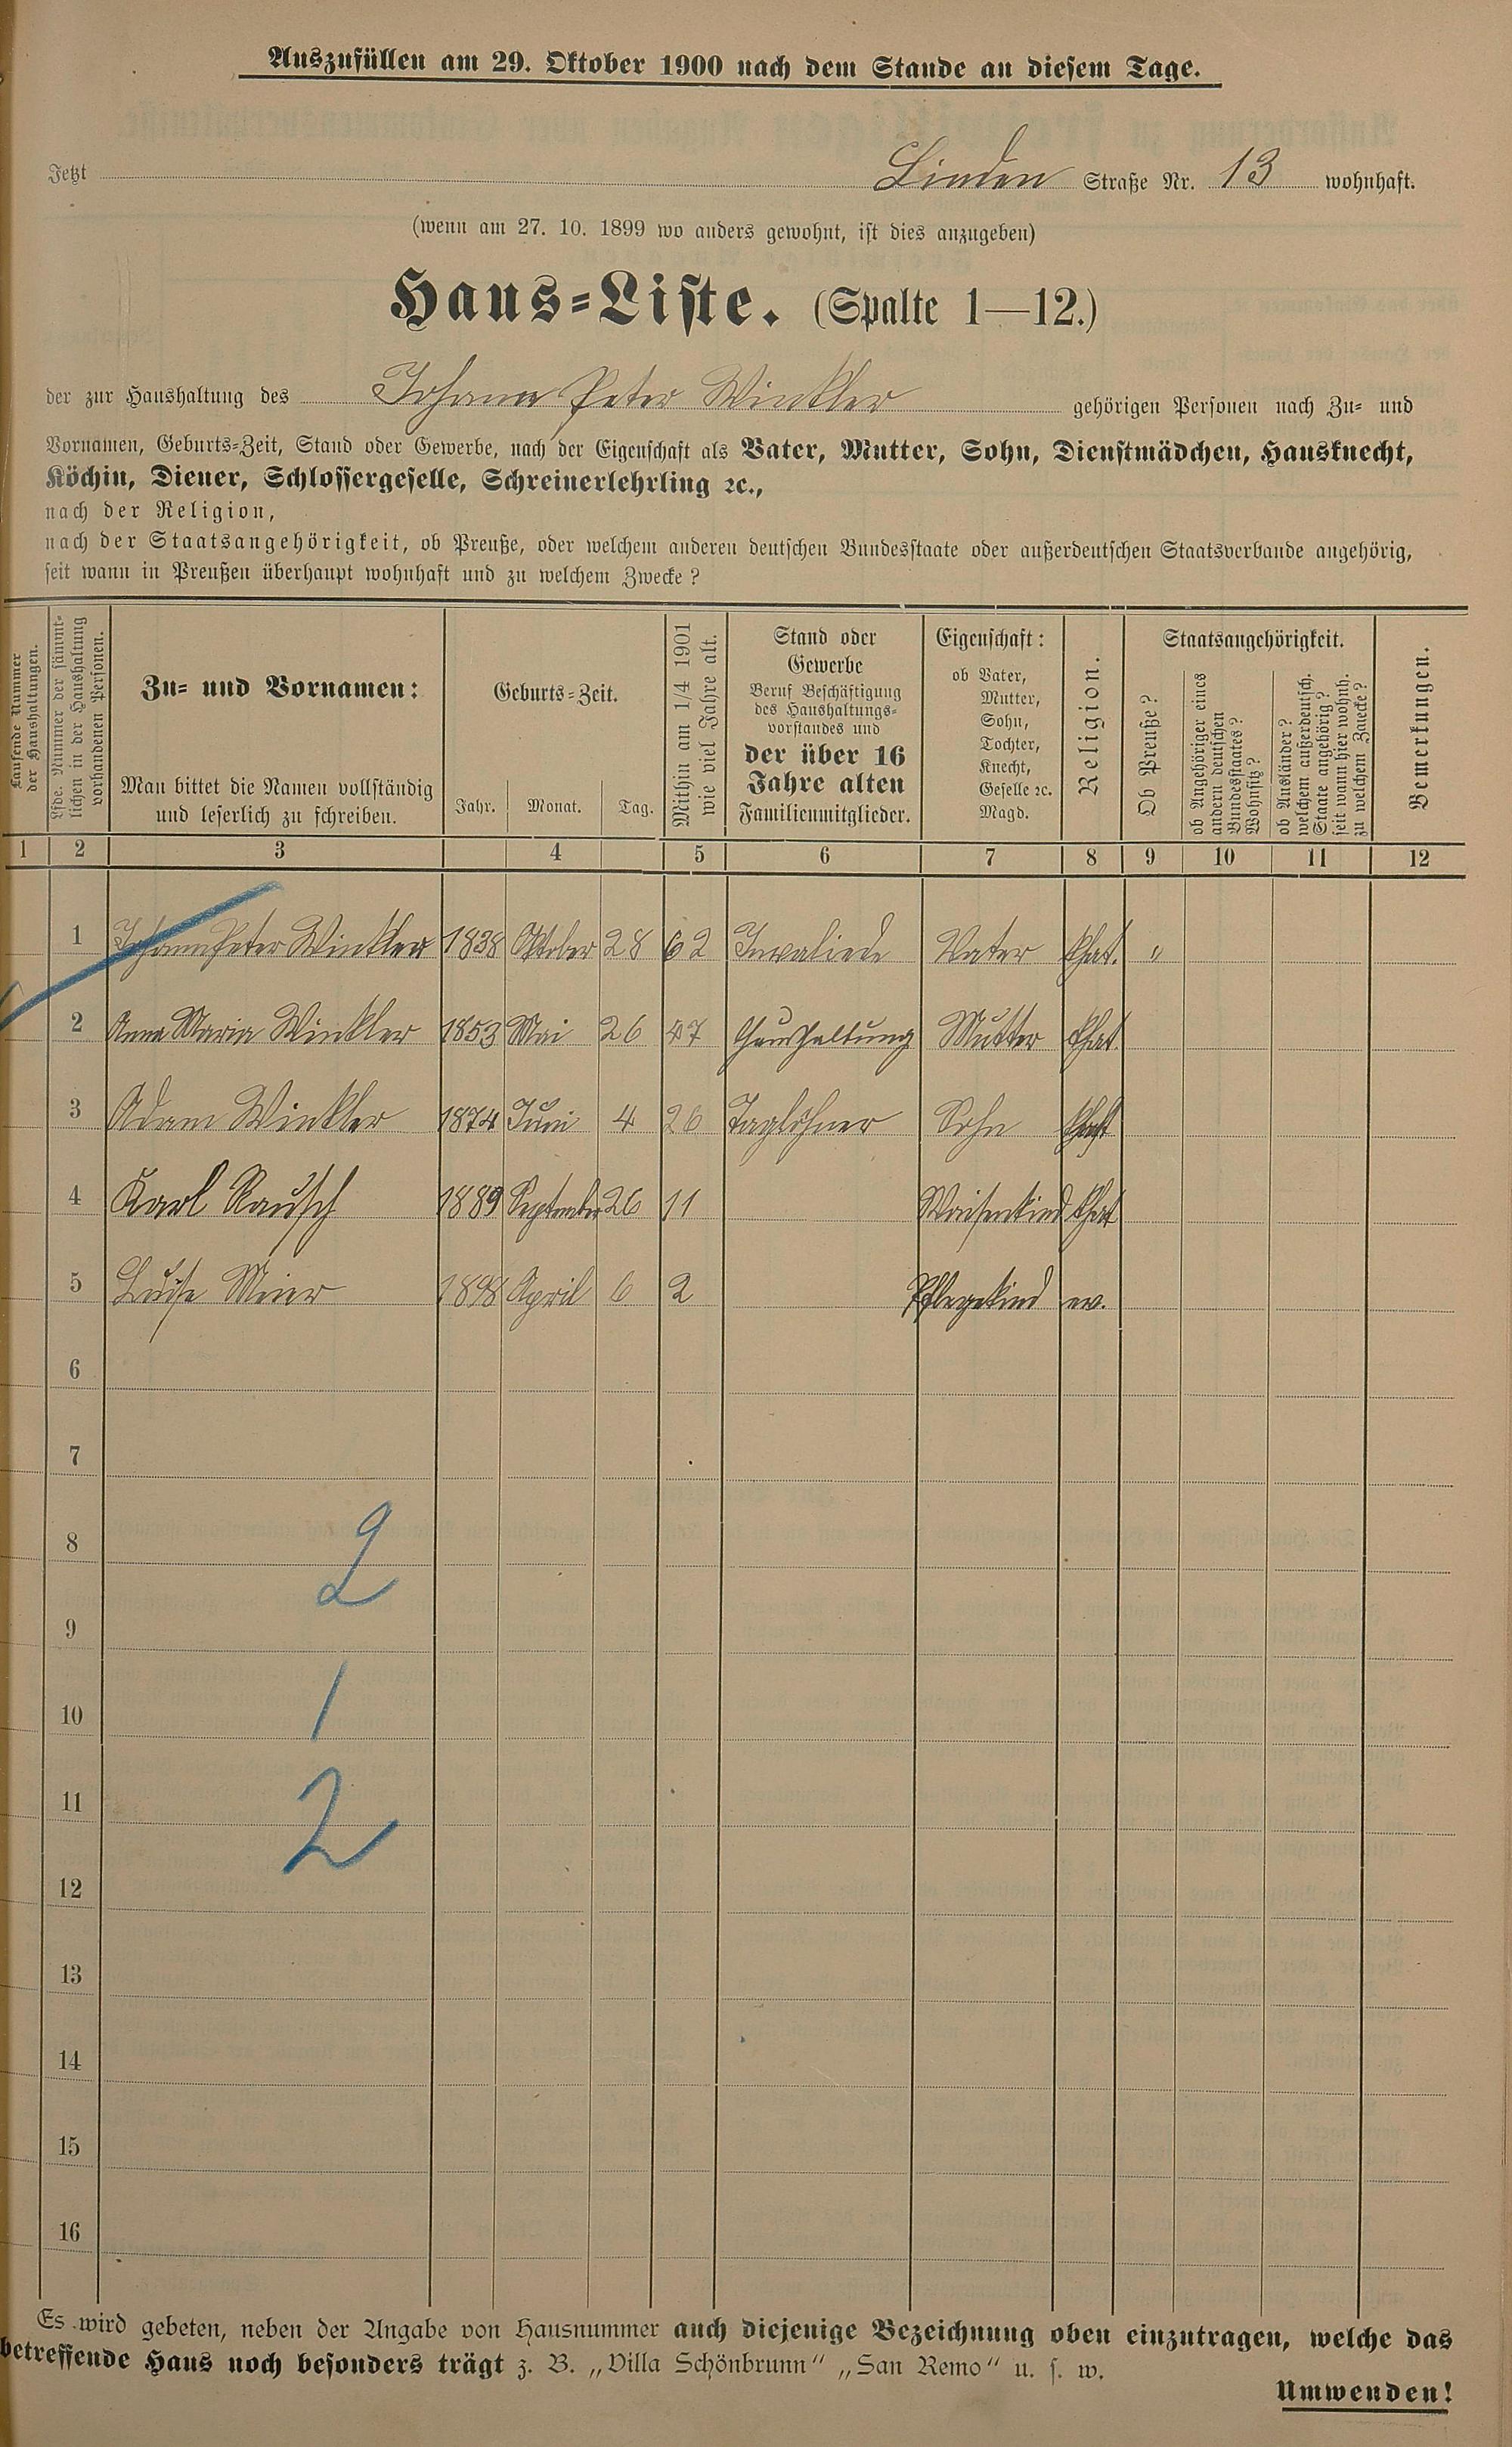 Auszufüllen am 29. Oktober 1900 nach dem Stande an diesem Tage.
Jetzt Linden Straße Nr. 13 wohnhaft.
(wenn am 27. 10. 1899 wo anders gewohnt, ist dies anzugeben)
Haus-Liste. (Spalte 1—12.)
der zur Haushaltung des Johann Peter Winkler gehörigen Personen nach Zu- und
Vornamen, Geburts-Zeit, Stand oder Gewerbe, nach der Eigenschaft als Vater, Mutter, Sohn, Dienstmädchen, Hausknecht,
Köchin, Diener, Schlossergeselle, Schreinerlehrling ꝛc.,
nach der Religion,
nach der Staatsangehörigkeit, ob Preuße, oder welchem anderen deutschen Bundesstaate oder außerdeutschen Staatsverbande angehörig,
seit wann in Preußen überhaupt wohnhaft und zu welchem Zwecke?
Laufende Nummer
der Haushaltungen.
Lfde. Nummer der sämmt-
lichen in der Haushaltung
vorhandenen Personen.
Zu- und Vornamen:
Man bittet die Namen vollständig
und leserlich zu schreiben.
Geburts-Zeit.
Jahr. Monat. Tag.
Mithin am 1/4 1901
wie viel Jahre alt.
Stand oder
Gewerbe
Beruf Beschäftigung
des Haushaltungs-
vorstandes und
der über 16
Jahre alten
Familienmitglieder.
Eigenschaft:
ob Vater,
Mutter,
Sohn,
Tochter,
Knecht,
Geselle ꝛc.
Magd.
Religion.
Staatsangehörigkeit.
Ob Preuße?
ob Angehöriger eines
andern deutschen
Bundesstaates?
Wohnsitz?
ob Ausländer?
welchem außerdeutsch.
Staate angehörig?
seit wann hier wohnh.
zu welchem Zwecke?
Bemerkungen.
1 2 3 4 5 6 7 8 9 10 11 12
1 Johann Peter Winkler 1838 Oktober 28 62 Invaliede Vater Khat. "
2 Anna Maria Winkler 1853 Mai 26 47 Haushaltung Mutter Khat.
3 Adam Winkler 1874 Juni 4 26 Taglöhner Sohn Khat
4 Karl Rausch 1889 September 26 11 Waisenkind Khat
5 Luise Meier 1898 April 6 2 Pflegekind ev.
6
7
8
2
9
10 1
11 2
12
13
14
15
16
Es wird gebeten, neben der Angabe von Hausnummer auch diejenige Bezeichnung oben einzutragen, welche das
betreffende Haus noch besonders trägt z. B. „Villa Schönbrunn“ „San Remo“ u. s. w.
Umwenden!